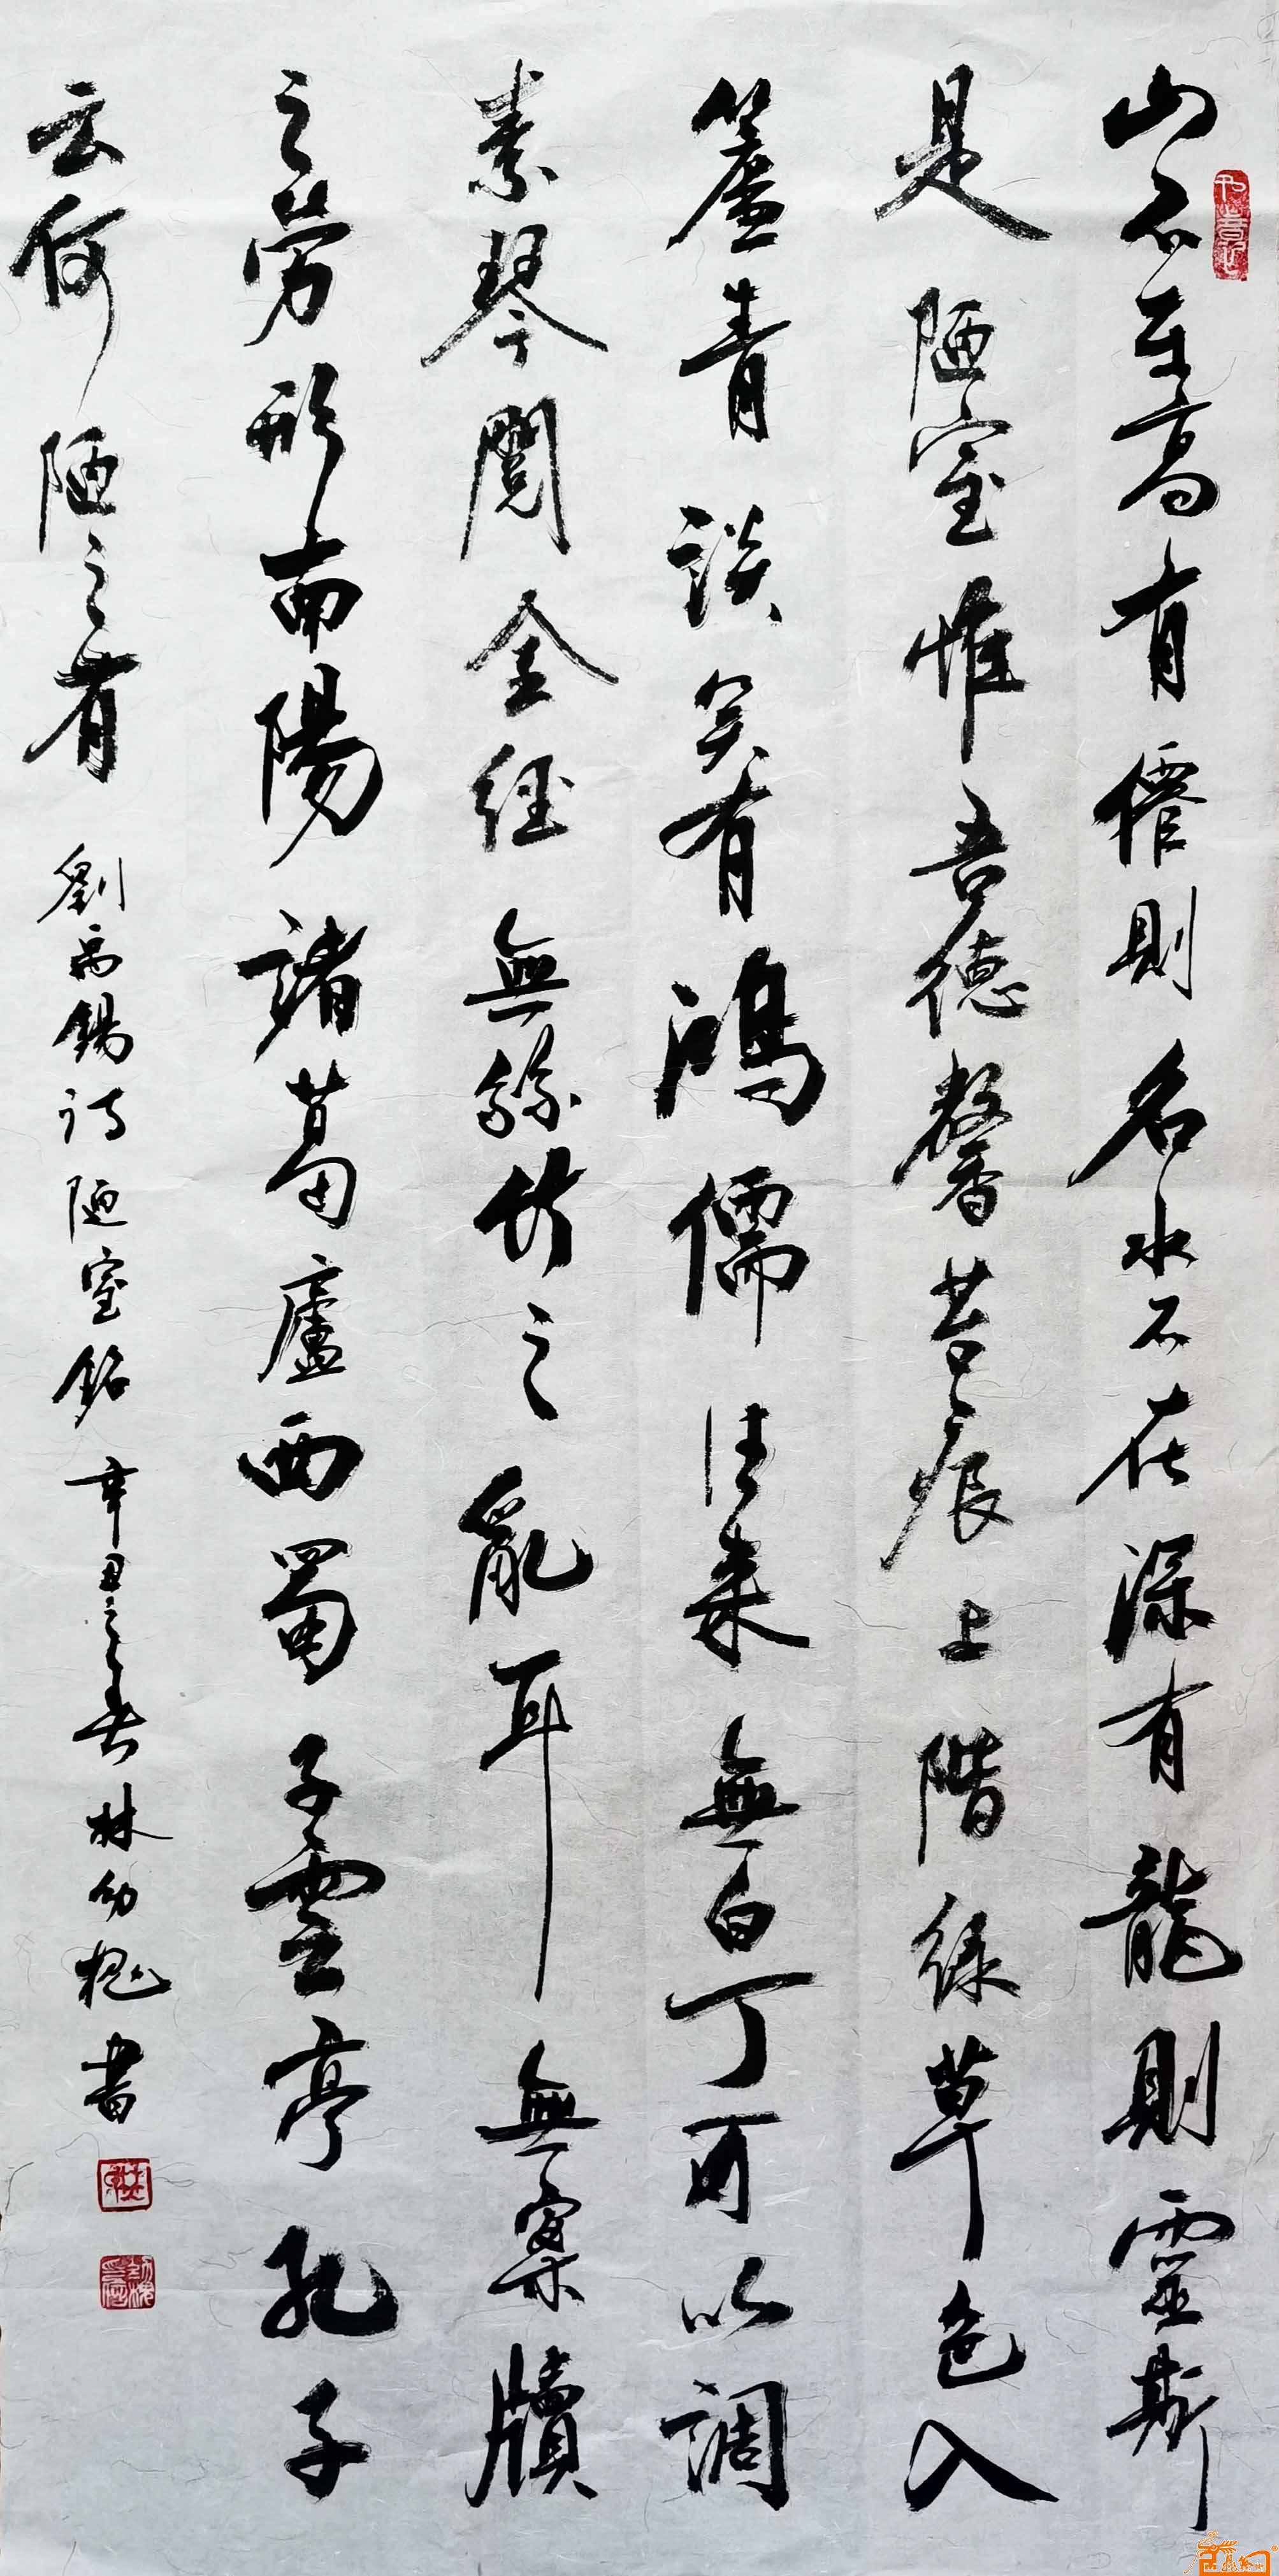 山不在高有僊則名水不在深有龍則靈斯
是陋室惟吾德馨苔痕上階綠草色入
簾青談笑有鴻儒往来無白丁可以調
素琴閱金經無絲竹之亂耳無案牘
之勞形南陽諸葛廬西蜀子雲亭孔子
云何陋之有 劉禹錫詩陋室銘 辛丑之春 林幼槐書